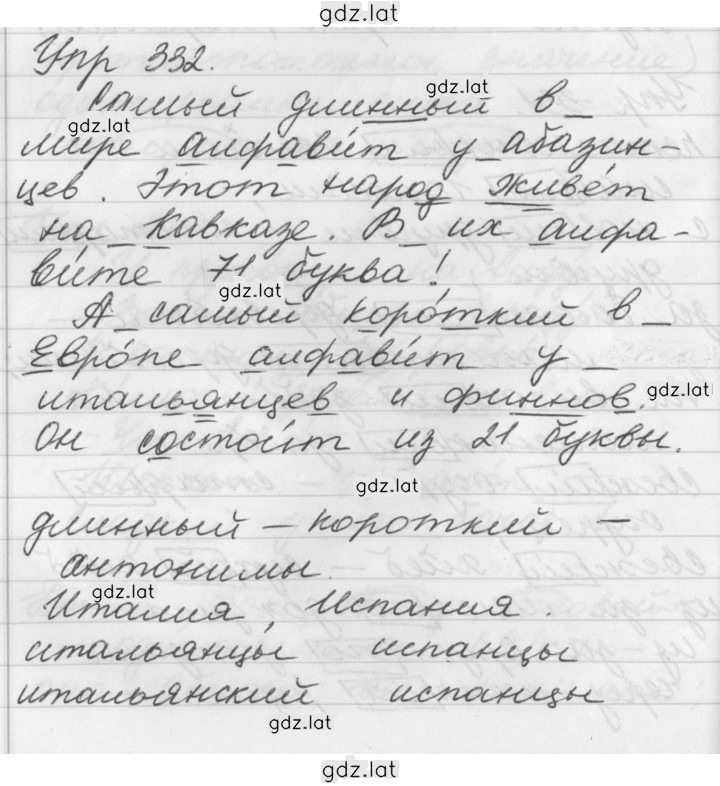 gdz.lat
Упр 332.
gdz.lat
Самый длинный в
gdz.lat
мире алфави́т у абазин-
цев. Этот народ живёт
на Кавказе. В их алфа-
ви́те 71 буква!
gdz.lat
А самый коро́ткий в
Евро́пе алфави́т у
итальянцев и финнов.
gdz.lat
Он состои́т из 21 буквы.
gdz.lat
длинный – короткий –
антонимы.
gdz.lat
Италия, Испания.
итальянцы испанцы
итальянский испанцы
gdz.lat
gdz.lat